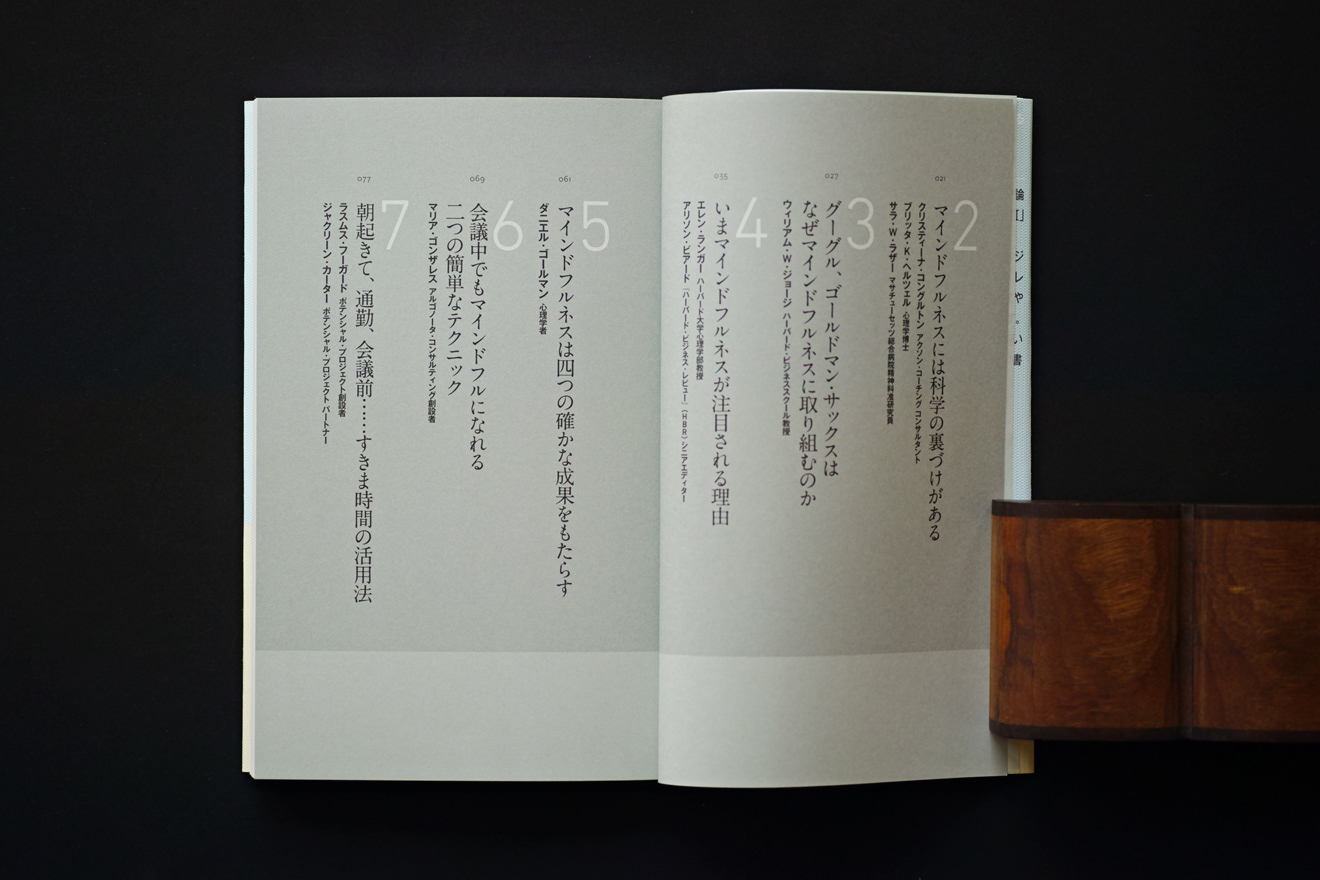 論
「」
ジ
レ
や
。
い
書
021
2
マインドフルネスには科学の裏づけがある
クリスティーナ・コングルトン アクソン・コーチング コンサルタント
ブリッタ・K・ヘルツェル 心理学博士
サラ・W・ラザー マサチューセッツ総合病院精神科准研究員
027
3
グーグル、ゴールドマン・サックスは
なぜマインドフルネスに取り組むのか
ウィリアム・W・ジョージ ハーバード・ビジネススクール教授
035
4
いまマインドフルネスが注目される理由
エレン・ランガー ハーバード大学心理学部教授
アリソン・ビアード 『ハーバード・ビジネス・レビュー』(HBR)シニアエディター
061
5
マインドフルネスは四つの確かな成果をもたらす
ダニエル・ゴールマン 心理学者
069
6
会議中でもマインドフルになれる
二つの簡単なテクニック
マリア・ゴンザレス アルゴノータ・コンサルティング創設者
077
7
朝起きて、通勤、会議前……すきま時間の活用法
ラスムス・フーガード ポテンシャル・プロジェクト創設者
ジャクリーン・カーター ポテンシャル・プロジェクト パートナー